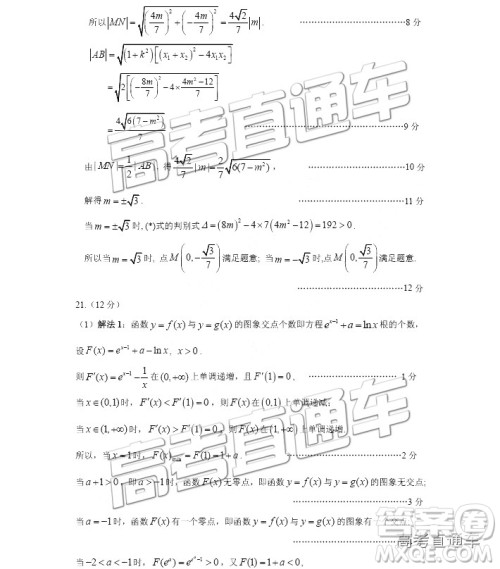 所以|MN|=√((4m/7)²+(-4m/7)²)=4√2/7|m|. ……8 分
|AB|=√((1+k²)[(x₁+x₂)²-4x₁x₂])
=√(2[(-8m/7)²-4×(4m²-12)/7])
=4√(6(7-m²))/7 ……9 分
由|MN|=1/2|AB|, 得4√2/7|m|=2/7√(6(7-m²)), ……10 分
解得m=±√3. ……11 分
当m=±√3时, (*)式的判别式Δ=(8m)²-4×7(4m²-12)=192>0.
所以当m=√3时, 点M(0,-√3/7)满足题意; 当m=-√3时, 点M(0,√3/7)满足题意.
……12 分
21.（12 分）
（1）解法 1：函数y=f(x)与y=g(x)的图象交点个数即方程eˣ⁻¹+a=lnx根的个数,
设F(x)=eˣ⁻¹+a-lnx, x>0.
则F′(x)=eˣ⁻¹-1/x在(0,+∞)上单调递增，且F′(1)=0. ……1 分
当x∈(0,1)时, F′(x)<F′(1)=0，则F(x)在(0,1)上单调递减;
当x∈(1,+∞)时, F′(x)>F′(1)=0，则F(x)在(1,+∞)上单调递增.
所以，当x=1时, F(x)min=F(1)=1+a. ……2 分
当a+1>0，即a>-1时, F(x)无零点，即函数y=f(x)与y=g(x)的图象无交点;
……3 分
当a=-1时, F(x)有一个零点，即函数y=f(x)与y=g(x)的图象有一
当-2<a<-1时，F(eᵃ)=e^(eᵃ-1)>0，又F(1)=1+a<0.
高考直通车
答案卷
高考直通车
MXQE.COM